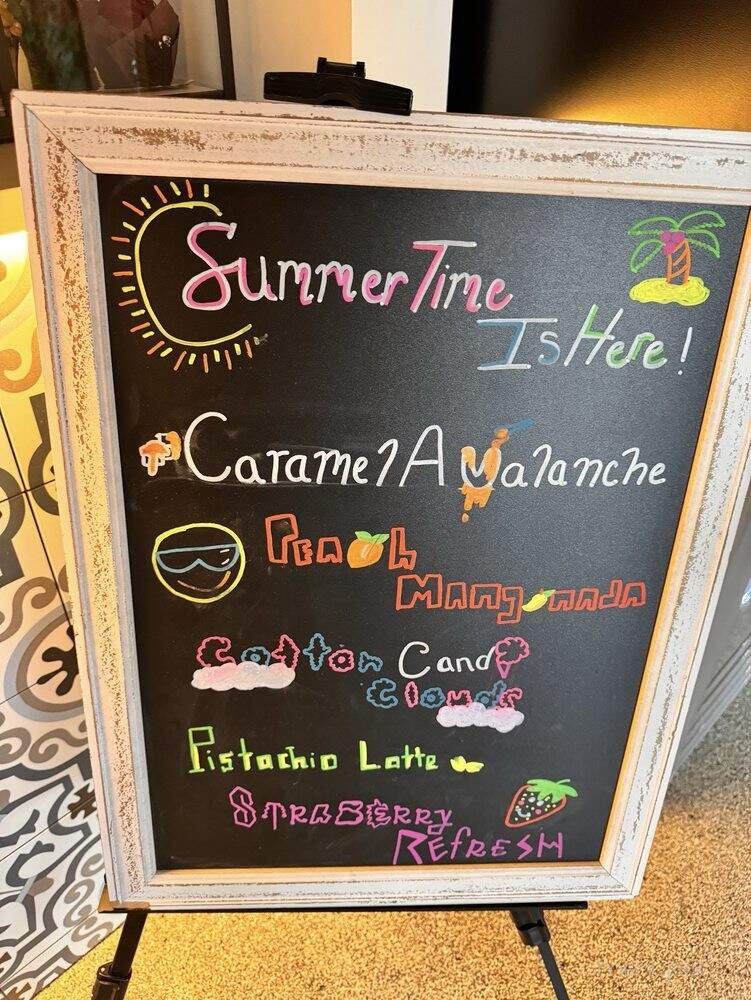 Summer Time
Is Here!
Caramel Avalanche
Peach
Mangonada
Cotton Candy
Clouds
Pistachio Latte
Straberry
Refresh